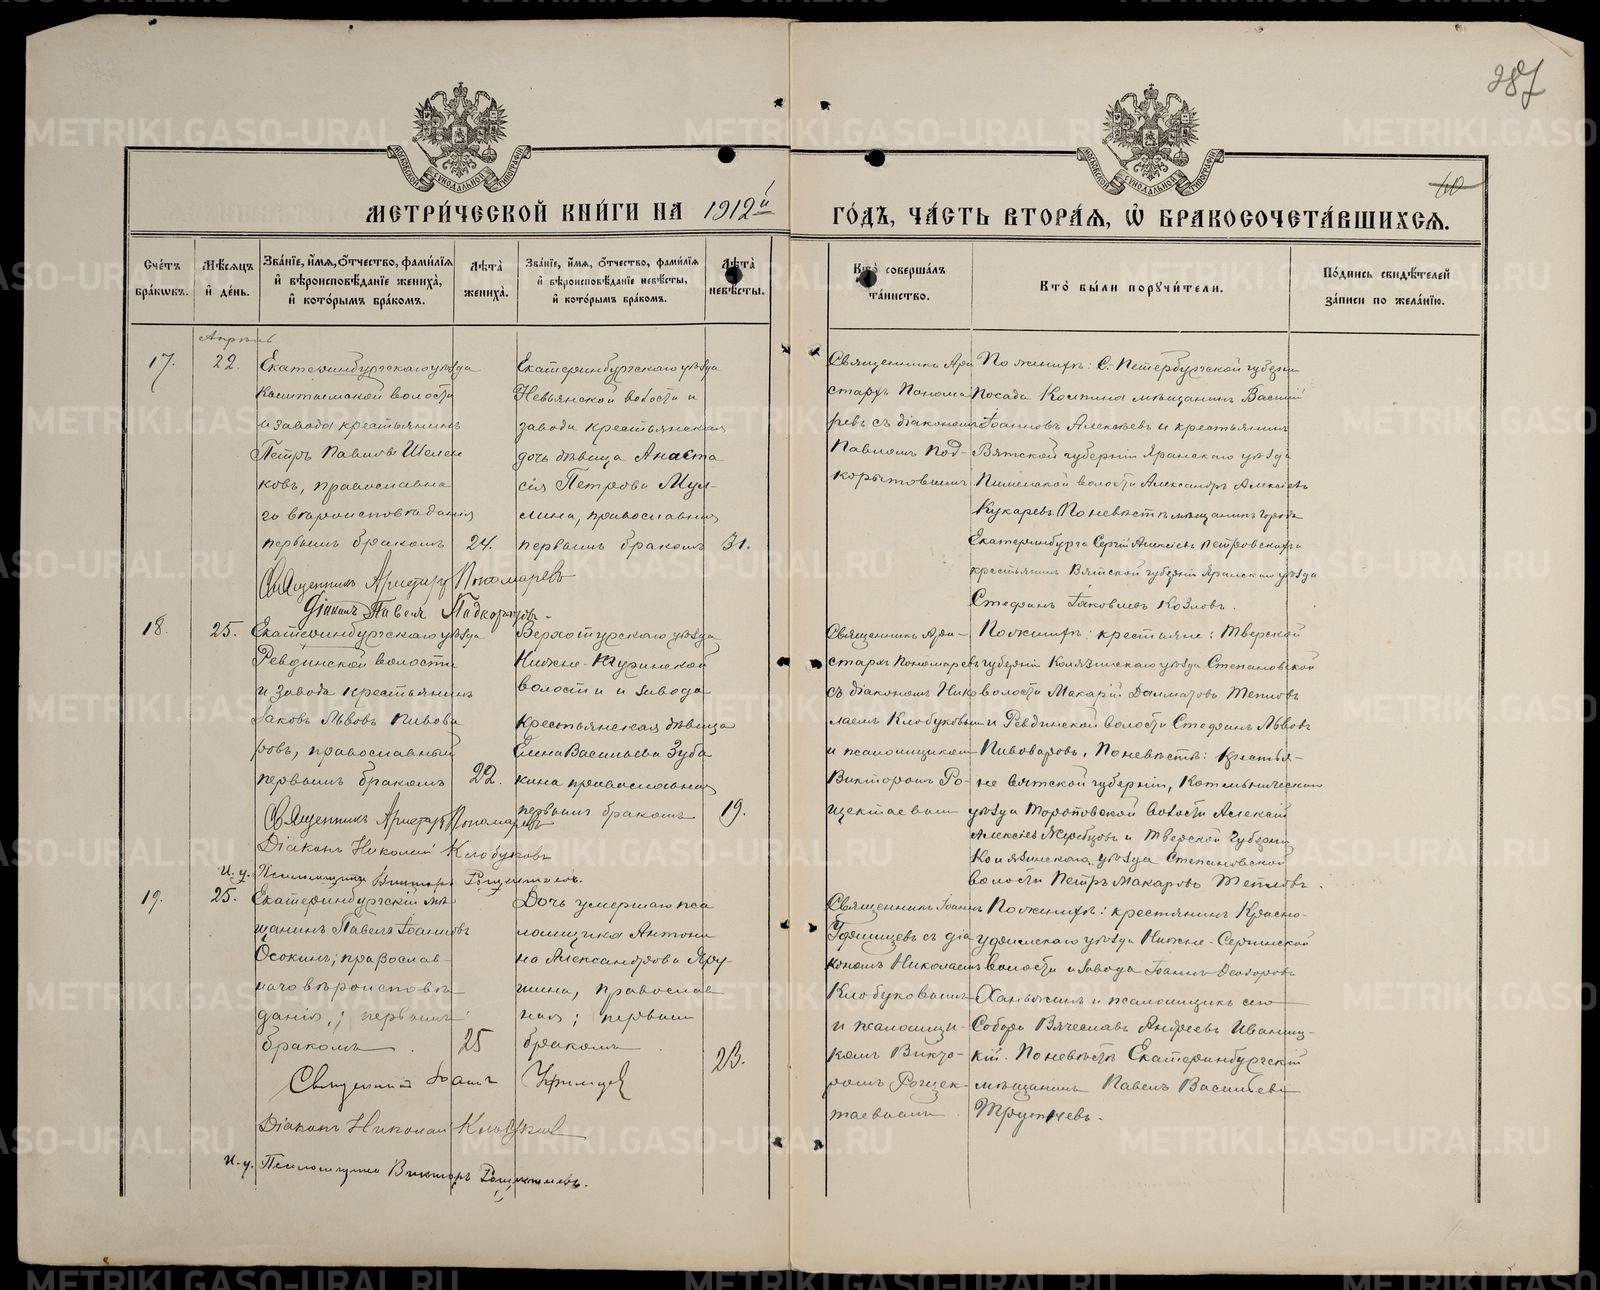 287
10
МЕТРИЧЕСКОЙ КНИГИ НА 1912й
ГОДЪ, ЧАСТЬ ВТОРАЯ, Ѡ БРАКОСОЧЕТАВШИХСЯ.
Счетъ браковъ.
Мѣсяцъ и день.
Званіе, имя, отчество, фамилія и вѣроисповѣданіе жениха, и которымъ бракомъ.
Лѣта жениха.
Званіе, имя, отчество, фамилія и вѣроисповѣданіе невѣсты, и которымъ бракомъ.
Лѣта невѣсты.
Кто совершалъ таинство.
Кто были поручители.
Подпись свидѣтелей записи по желанію.
Апрѣль
17.
22.
Екатеринбургскаго уѣзда
Кыштымской волости
и завода крестьянинъ
Петръ Павловъ
ковъ, православна
го вѣроисповѣданія
первымъ бракомъ
24.
Екатеринбургскаго уѣзда
Невьянской волости и
завода крестьянская
дочь дѣвица Анаста
сія Петрова Мул-
лина, православная
первымъ бракомъ
31.
Священникъ Ари
стархъ Понома
ревъ съ діакономъ
Павломъ Под-
корытовымъ
По женихѣ: С. Петербургской губерніи
Посада Колпина мѣщанинъ Василій
Іоанновъ Алексѣевъ и крестьянинъ
Вятской губерніи Яранскаго уѣзда
волости Александръ Алексѣевъ
Кукаревъ. По невѣстѣ мѣщанинъ города
Екатеринбурга Сергій Алексѣевъ Петровскихъ и
крестьянинъ Вятской губерніи Яранскаго уѣзда
Стефанъ Іаковлевъ Козловъ.
Священникъ Аристархъ Пономаревъ
Діаконъ Павелъ Подкорытовъ.
18.
25.
Екатеринбургскаго уѣзда
Ревдинской волости
и завода крестьянинъ
Іаковъ Львовъ Пивова
ровъ, православный
первымъ бракомъ
22.
Верхотурскаго уѣзда
Нижне-Туринской
волости и завода
крестьянская дѣвица
Елена Васильева Зуба
кина православная
первымъ бракомъ
19.
Священникъ Ари-
стархъ Пономаревъ
съ діакономъ Нико
лаемъ Клобуковымъ
и псаломщикомъ
Викторомъ Ро-
щектаевымъ
По женихѣ: крестьяне: Тверской
губерніи Колязинскаго уѣзда Степановской
волости Макарій Далматовъ Тепловъ
и Ревдинской волости Стефанъ Львовъ
Пивоваровъ. По невѣстѣ: крестья-
не Вятской губерніи, Котельническаго
уѣзда Тороповской волости Алексѣй
Алексѣевъ Жеребцовъ и Тверской губерніи
Колязинскаго уѣзда Степановской
волости Петръ Макаровъ Тепловъ.
Священникъ Аристархъ Пономаревъ
Діаконъ Николай Клобуковъ
И. у. Псаломщика Викторъ Рощектаевъ.
19.
25.
Екатеринбургскій мѣ
щанинъ Павелъ Іоанновъ
Осокинъ; православ-
наго вѣроисповѣ
данія,; первымъ
бракомъ.
25
Дочь умершаго пса
ломщика Антони
на Александрова Яру-
шина, православ
ная; первымъ
бракомъ.
23.
Священникъ Іоаннъ
съ діа
кономъ Николаемъ
Клобуковымъ
и псаломщи-
комъ Викто-
ромъ Рощек-
таевымъ.
По женихѣ: крестянинъ Красно-
уфимскаго уѣзда Нижне-Сергинской
волости и завода Іоаннъ Ѳеодоровъ
Ханьжинъ и псаломщикъ сего
Собора Вячеславъ Андреевъ Иваниц-
кій. По невѣстѣ Екатеринбургскій
мѣщанинъ Павелъ Васильевъ
Священникъ Іоаннъ
Діаконъ Николай Клобуковъ
И. у. Псаломщика Викторъ Рощектаевъ.
METRIKI.GASO-URAL.RU